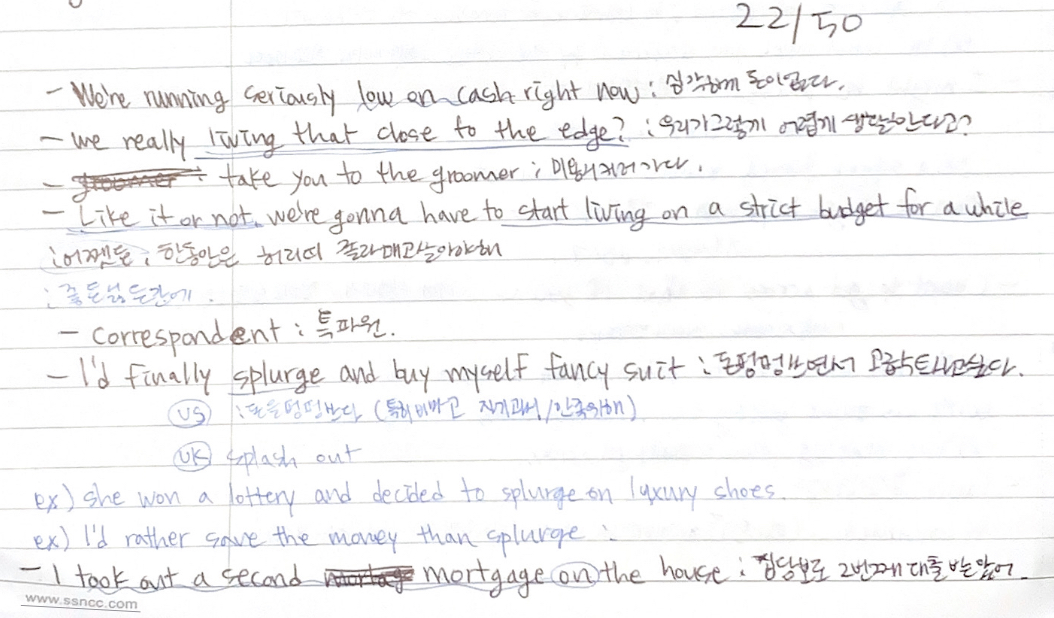 22/50
- We're running seriously low on cash right now : 심각하게 돈이없다.
- we really living that close to the edge? : 우리가그렇게 어렵게 생활한다고?
- groomer : take you to the groomer : 미용시키러가다.
- Like it or not, we're gonna have to start living on a strict budget for a while
: 어쨌든 : 한동안은 허리띠 졸라매고살아야해
: 좋든싫든간에.
- correspondent : 특파원.
- I'd finally splurge and buy myself fancy suit : 돈펑펑쓰면서 고급슈트사고싶다.
US : 돈을펑펑쓰다 (특히
UK splash out
ex) she won a lottery and decided to splurge on lyxury shoes.
ex) I'd rather save the money than splurge :
- I took out a second mortage mortgage on the house : 집담보로 2번째 대출받았어.
www.ssncc.com